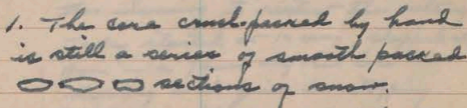 1. The core crush-packed by hand
is still a series of smooth packed
sections of snow.